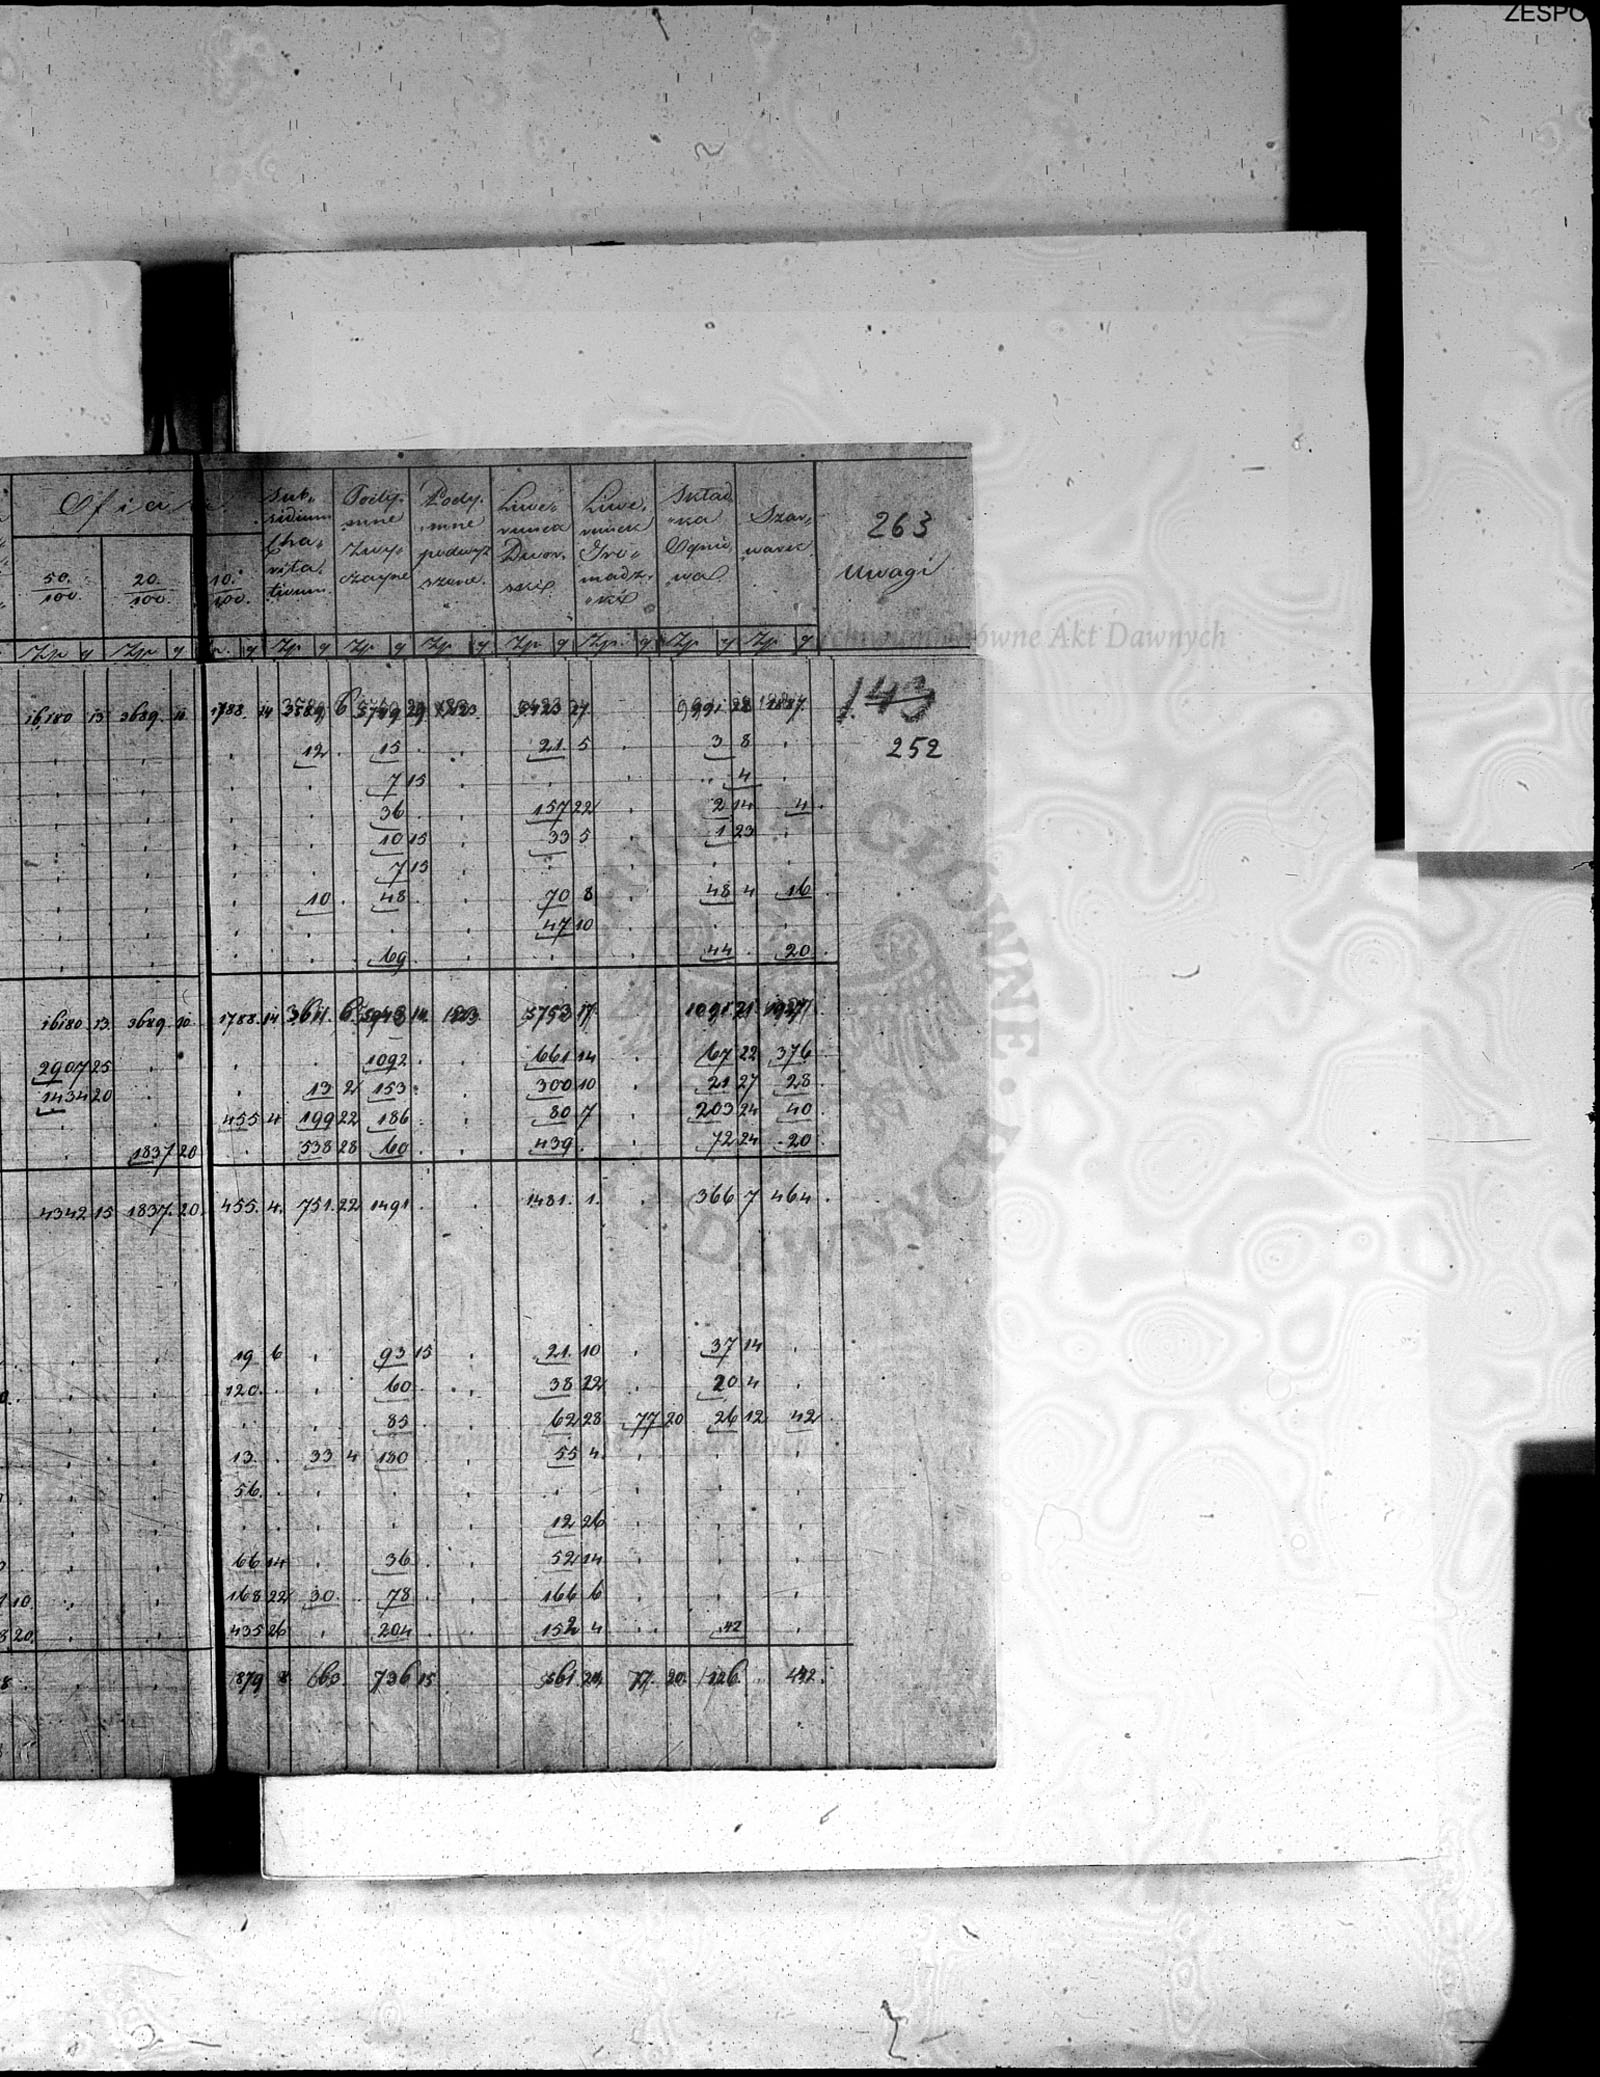 ZESPO
Ofiara
50/100 20/100 10/100
Subsidium Charitativum
Podymne Zwyczayne
Podymne podwyższone
Liwerunek Dworski
Liwerunek Gromadzki
Składka Ogniowa
Szarwark
263
Uwagi
Archiwum Główne Akt Dawnych
Zp g Zp g g Zp g Zp g Zp g Zp g Zp g Zp g Zp g
16,180 13 3689 10 1788 14 6 27 28 143
12 15 21 5 3 8 252
7 15 4
36 157 22 2 14 4
10 15 33 5 1 23
7 15
10 48 70 8 48 4 16
47 10
69 44 20
16180 13 3689 10 1788 14 3611 6 3753 17 1091 21
2907 25 1092 661 14 67 22 376
1434 20 13 2 153 300 10 21 27 28
455 4 199 22 186 80 7 203 24 40
1837 20 538 28 60 439 72 24 20
4342 15 1837 20 455 4 751 22 1491 1481 1 366 7 464
19 6 93 15 21 10 37 14
120 60 38 22 20 4
85 62 28 77 20 26 12 42
13 33 4 180 55 4
56
12 26
66 14 36 52 14
10 168 22 30 78 166 6
20 435 26 204 152 4 42
879 8 63 736 15 561 24 77 20 126 42
GŁÓWNE · AKT DAWNYCH